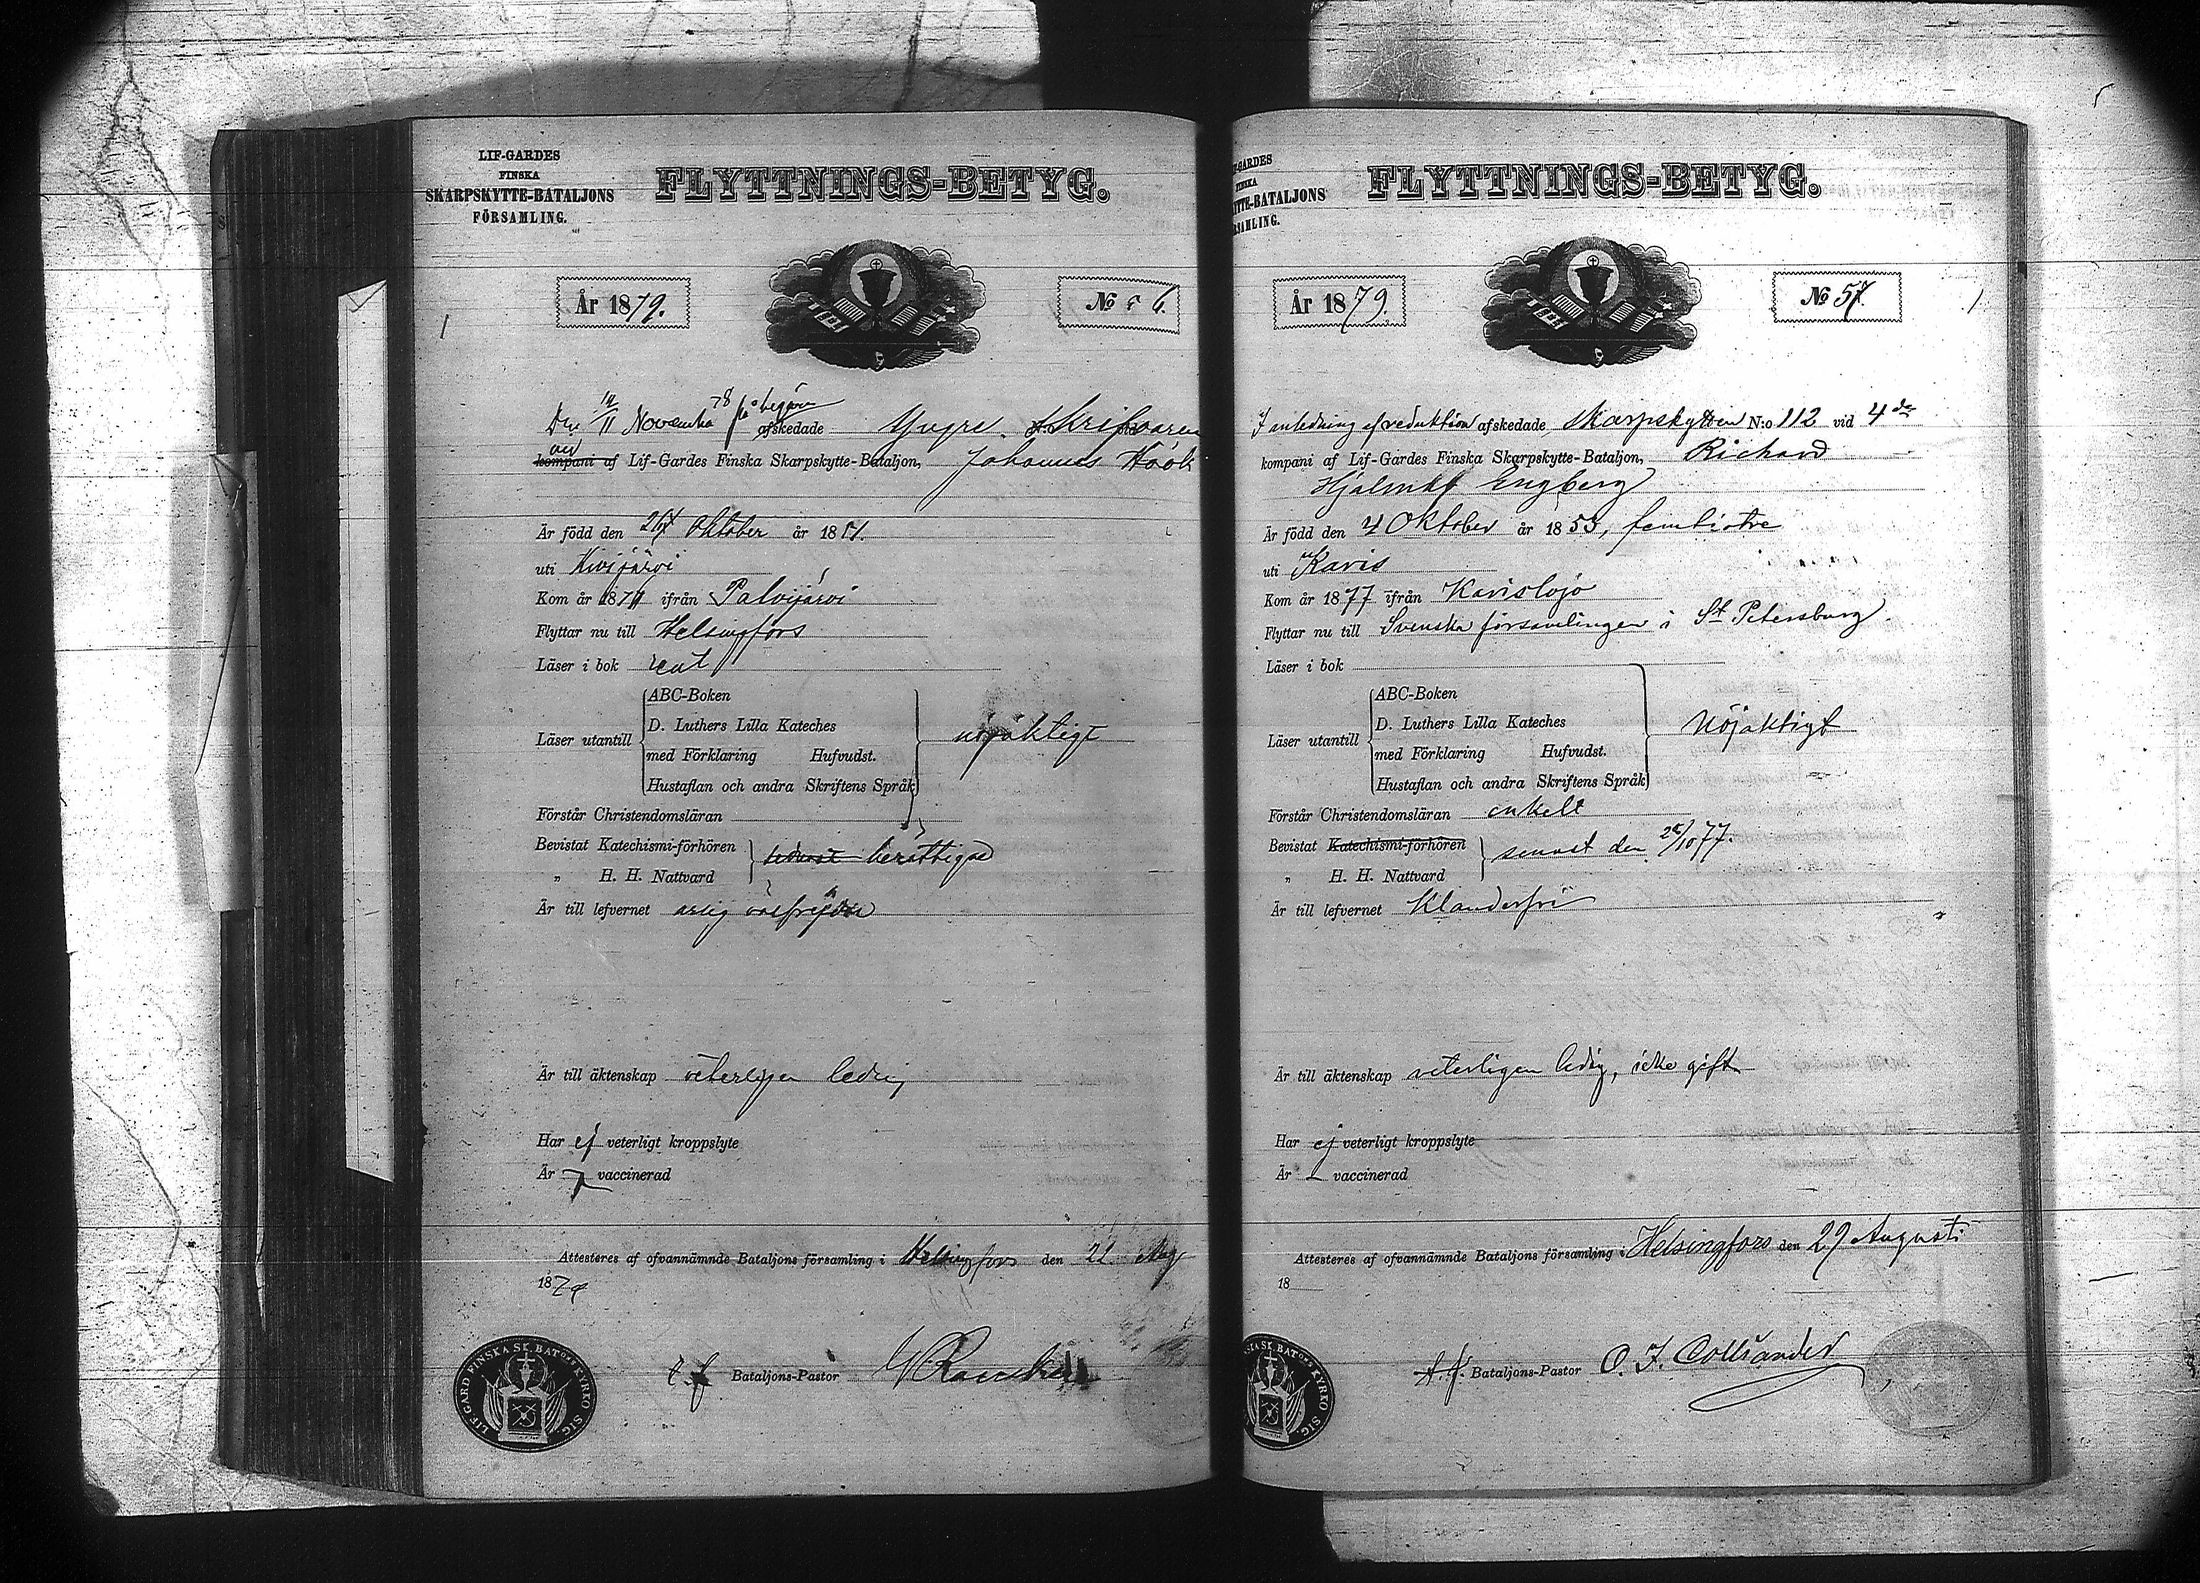 LIF-GARDES
FINSKA
SKARPSKYTTE-BATALJONS
FÖRSAMLING.
FLYTTNINGS-BETYG.
År 1879.
No 6.
Den 14/11 November 78 på begäran afskedade Yngre Skrifvaren
vid kompani af Lif-Gardes Finska Skarpskytte-Bataljon, Johannes Höök
Är född den Oktober år 1851.
uti Kivijärvi
Kom år 187 ifrån
Flyttar nu till Helsingfors
Läser i bok rent
Läser utantill
ABC-Boken
D. Luthers Lilla Kateches
med Förklaring Hufvudst.
Hustaflan och andra Skriftens Språk
nöjaktigt
Förstår Christendomsläran
Bevistat Katechismi-förhören
„ H. H. Nattvard
berättigad
Är till lefvernet ärlig välfrejdad
Är till äktenskap veterligen ledig
Har ej veterligt kroppslyte
Är vaccinerad
Attesteres af ofvannämnde Bataljons församling i Helsingfors den 21 Aug
1879
t. f. Bataljons-Pastor
LIF GARD FINSKA SK. BATONS KYRKO SIG.
-GARDES
FINSKA
YTTE-BATALJONS
RSAMLING.
FLYTTNINGS-BETYG.
År 1879.
No 57.
I anledning af reduktion afskedade Skarpskytten N:o 112 vid 4de
kompani af Lif-Gardes Finska Skarpskytte-Bataljon, Richard
Hjalmar Engberg
Är född den 4 Oktober år 1853, femtiotre
uti Karis
Kom år 1877 ifrån Karislojo
Flyttar nu till Svenska församlingen i St Petersburg.
Läser i bok
Läser utantill
ABC-Boken
D. Luthers Lilla Kateches
med Förklaring Hufvudst.
Hustaflan och andra Skriftens Språk
Nöjaktigt
Förstår Christendomsläran enkelt
Bevistat Katechismi-förhören
„ H. H. Nattvard
senast den /10 77.
Är till lefvernet Klanderfri
Är till äktenskap veterligen ledig, icke gift
Har ej veterligt kroppslyte
Är vaccinerad
Attesteres af ofvannämnde Bataljons församling i Helsingfors den 29 Augusti
18
t. f. Bataljons-Pastor O. F. Colliander
SKA SK. BATONS KYRKO SIG.